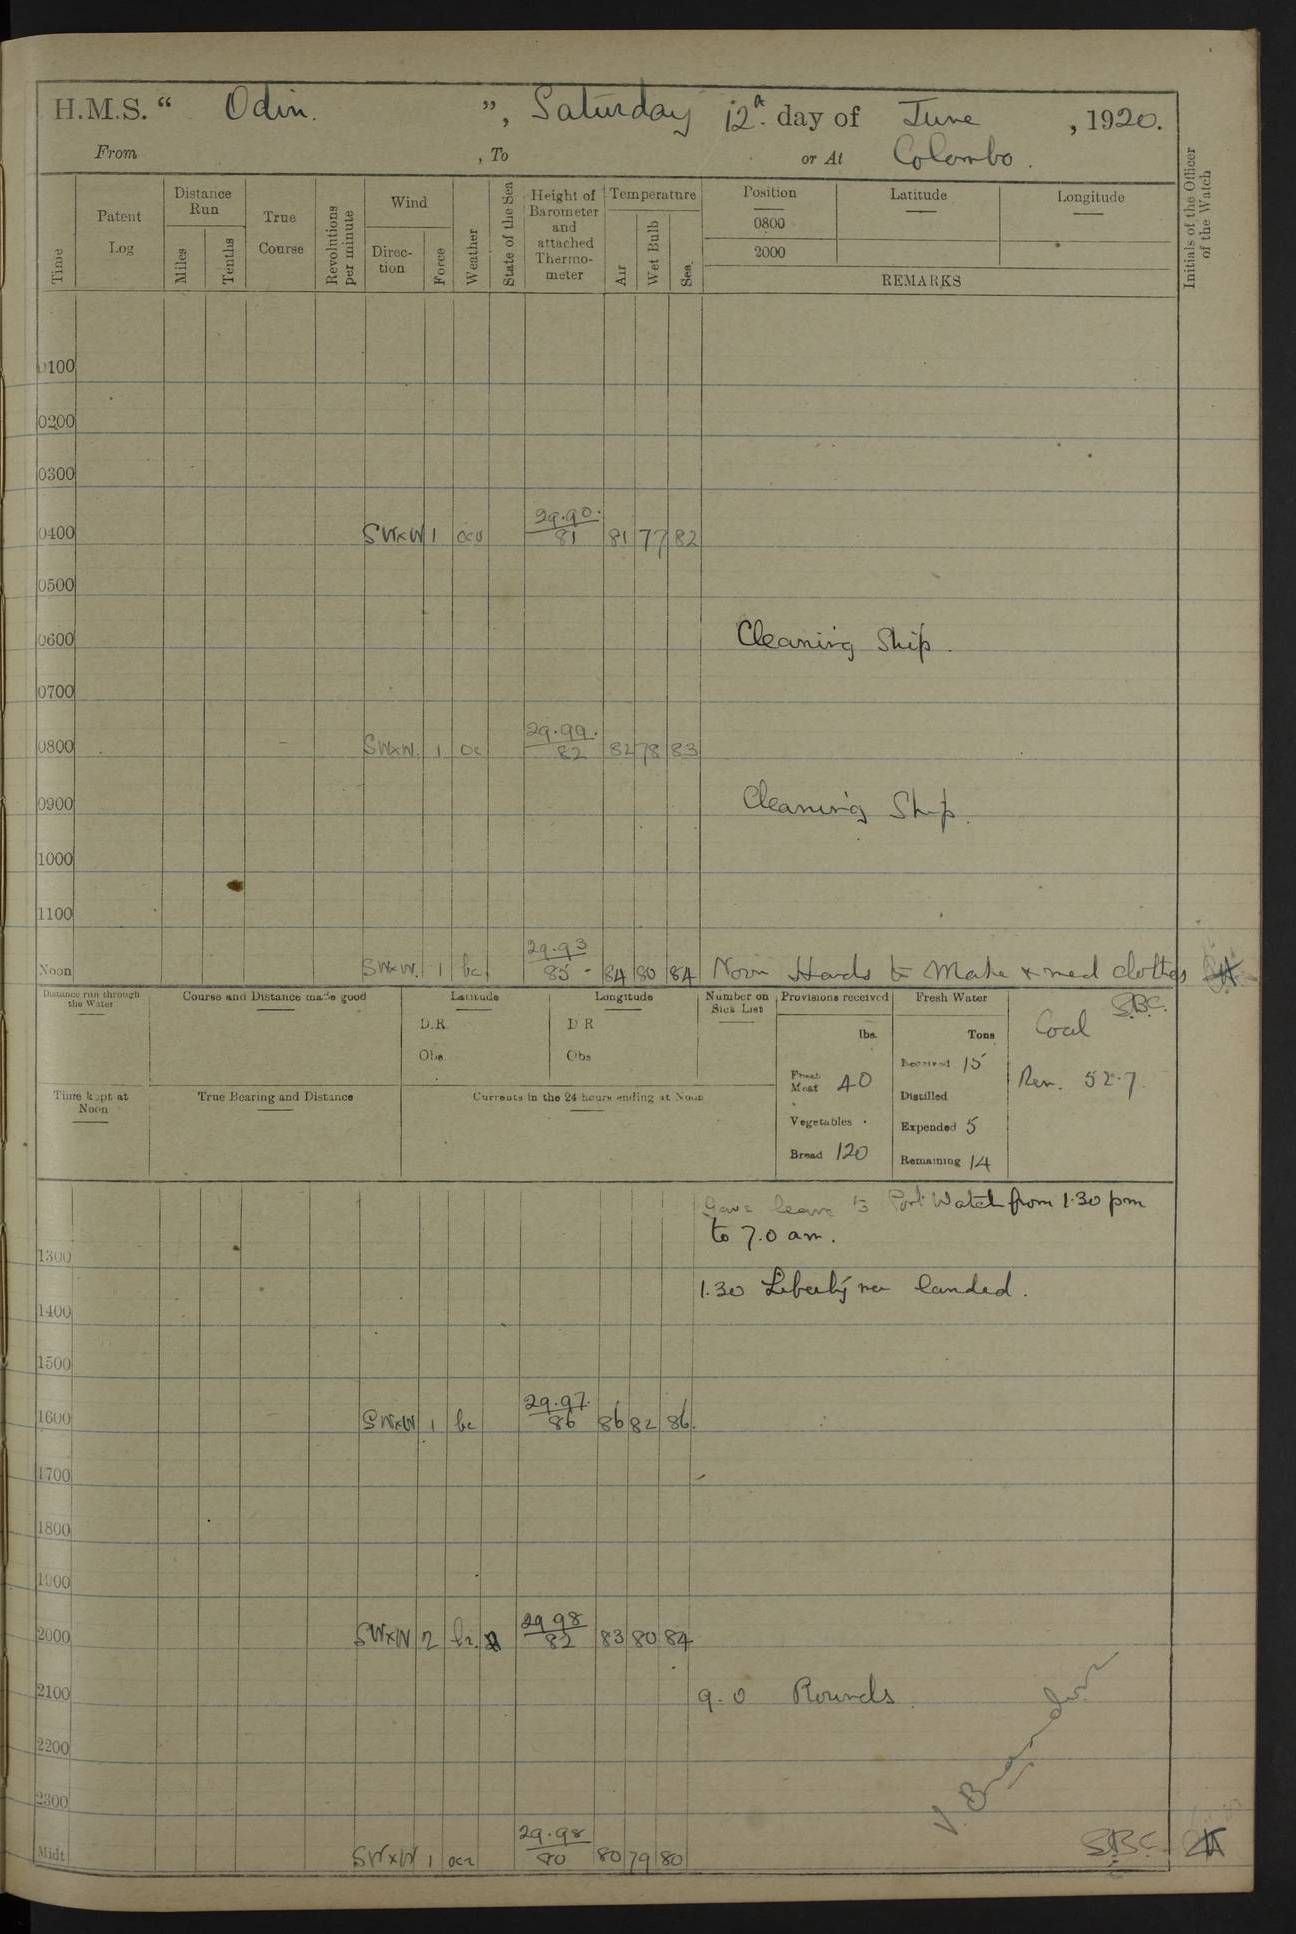 H.M.S. “ Odin. ”, Saturday 12th. day of June , 1920.
From , To or At Colombo.
Time
Patent Log
Distance Run
Miles
Tenths
True Course
Revolutions per minute
Wind
Direc-tion
Force
Weather
State of the Sea
Height of Barometer and attached Thermo-meter
Temperature
Air
Wet Bulb
Sea
Position
0800
2000
Latitude
Longitude
REMARKS
Initials of the Officer of the Watch
0100
0200
0300
0400 SWxW 1 29.90. 81 81 77 82
0500
0600 Cleaning Ship.
0700
0800 SWxW. 1 oc 29.99. 82 82 78 83
0900 Cleaning Ship.
1000
1100
Noon SWxW. 1 bc 29.93 85 84 80 84 Noon Hands to Make & mend clothes
Distance run through the Water
Course and Distance made good
Latitude
D.R.
Obs.
Longitude
D R
Obs
Number on Sick List
Provisions received
lbs.
Fresh Meat 40
Vegetables .
Bread 120
Fresh Water
Tons
Received 15
Distilled
Expended 5
Remaining 14
S.B.C.
Coal
Rem. 52.7
Time kept at Noon
True Bearing and Distance
Currents in the 24 hours ending at Noon
Gave leave to Port Watch from 1.30 pm
to 7.0 am.
1300
1.30 Liberty men landed.
1400
1500
1600 SWxW 1 bc 29.97. 86 86 82 86.
1700
1800
1900
2000 SWxW 2 29.98 82 83 80 84
2100 9.0 Rounds.
2200
2300
Midt SWxW 1 29.98 80 80 79 80
S.B.C.